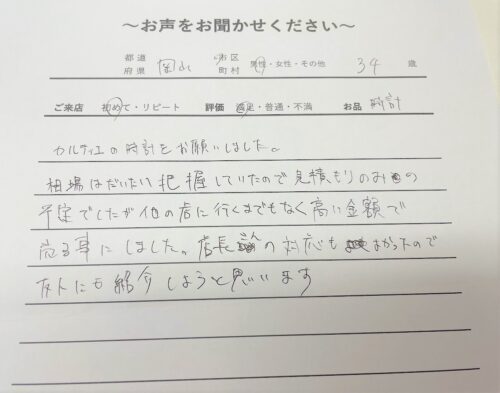 ～お声をお聞かせください～
都道府県 岡山 市区町村 男性・女性・その他 34 歳
ご来店 初めて・リピート 評価 満足・普通・不満 お品 時計
カルティエの時計をお願いしました。
相場はだいたい把握していたので見積もりのみの
予定でしたが他の店に行くまでもなく高い金額で
売る事にしました。店長さんの対応もよかったので
友人にも紹介しようと思います